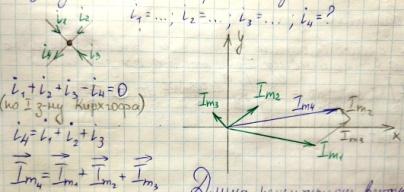 i₁ = ...; i₂ = ...; i₃ = ...; i₄ = ?
i₁ i₂
i₄ i₃
y
i₁ + i₂ + i₃ - i₄ = 0
(по I з-ну Кирхгофа)
i₄ = i₁ + i₂ + i₃
I⃗m₄ = I⃗m₁ + I⃗m₂ + I⃗m₃
Im₃ Im₂ Im₄ Im₂
Im₃ x
Im₁
Длина